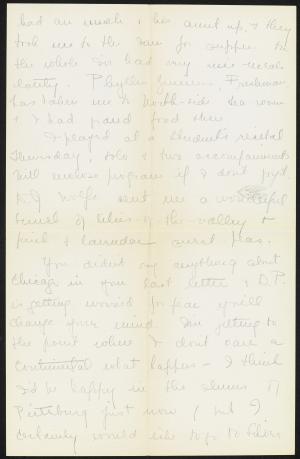 had an uncle & his aunt up, & they
took me to the Inn for supper. On
the whole I've had very nice meals
lately. Phyllis, Freshman
has taken me to North-side tea room
& I had good food there.
I played at a student's recital
Thursday, solo & two accompaniments
Will enclose program if I don't forget.
sent me a wonderful
bunch of lilies-of-the-valley &
pink & lavender sweet peas.
You didn't say anything about
Chicago in your last letter & D.P.
is getting worried for fear you'll
change your mind. I'm getting to
the point where I don't care a
continental what happens - I think
I'd be happy in the slums of
Pittsburg just now (but I
certainly would like to go to